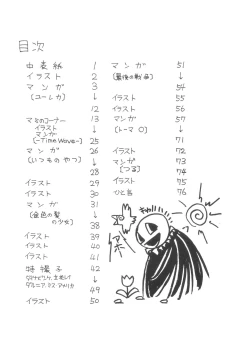 目次
中表紙 1
イラスト 2
マンガ 3
[ユーレカ] ↓
12
イラスト 13
マミのコーナー
イラスト
マンガ ↓
[-Time Wave-] 25
マンガ 26
[いつものやつ] ↓
28
イラスト 29
イラスト 30
マンガ 31
[金色の髪の少女] ↓
38
イラスト 39
イラスト 40
イラスト 41
特撮子 42
↓
49
イラスト 50
マンガ 51
[最後の戦品] ↓
54
イラスト 55
イラスト 56
マンガ 57
[トーマ・O] ↓
71
イラスト 72
マンガ 73
[つる] 74
イラスト 75
ひと言 76